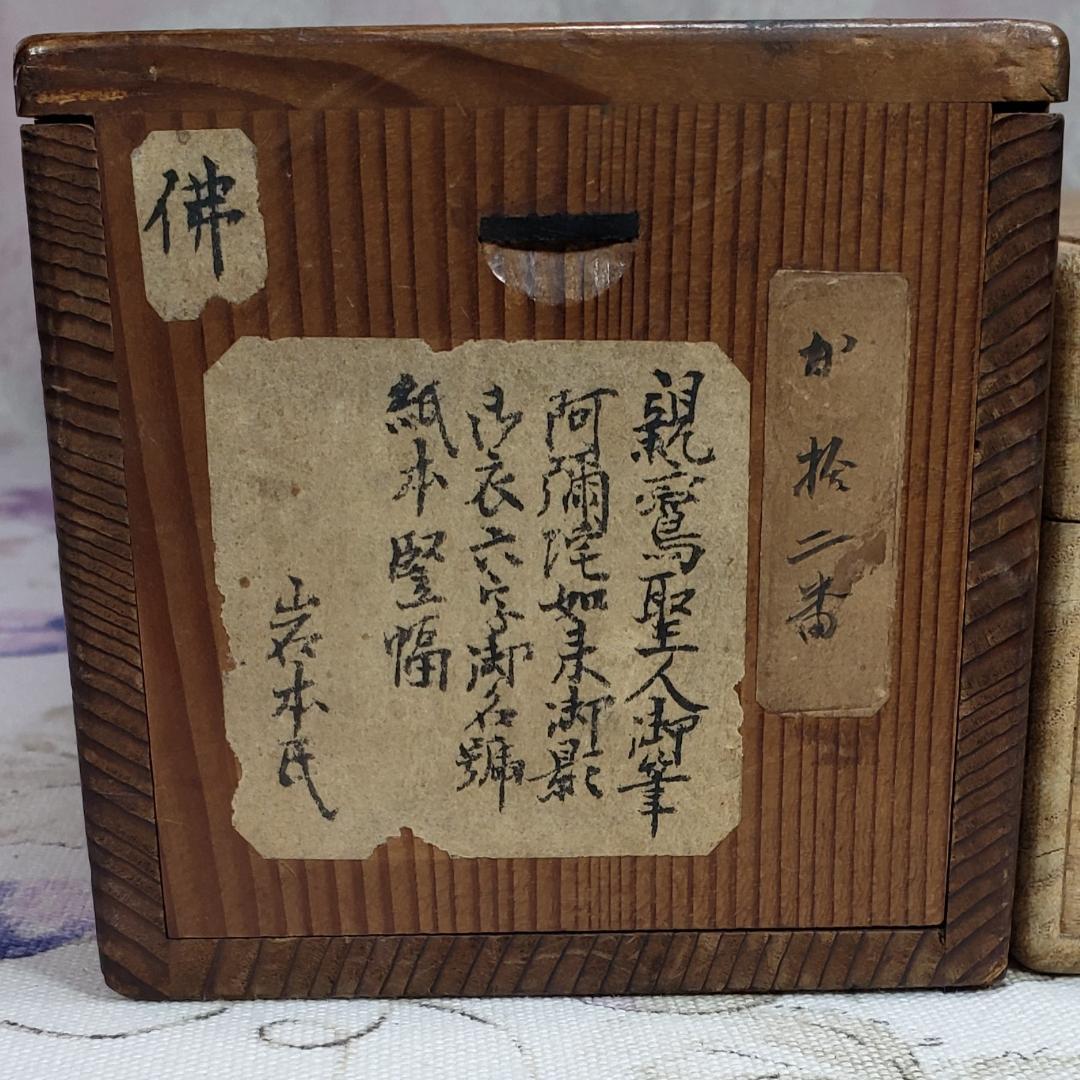 か拾二番
親鸞聖人御筆
阿彌陀如来御影
御衣六字御名號
紙本竪幅
岩本氏
佛